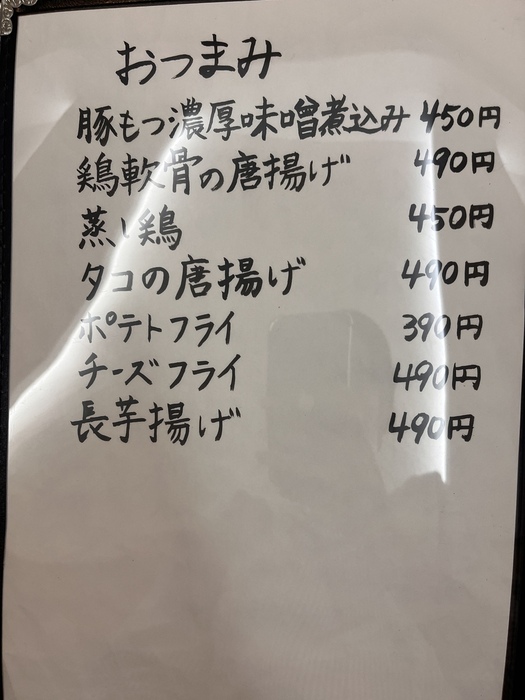 おつまみ
豚もつ濃厚味噌煮込み 450円
鶏軟骨の唐揚げ 490円
蒸し鶏 450円
タコの唐揚げ 490円
ポテトフライ 390円
チーズフライ 490円
長芋揚げ 490円